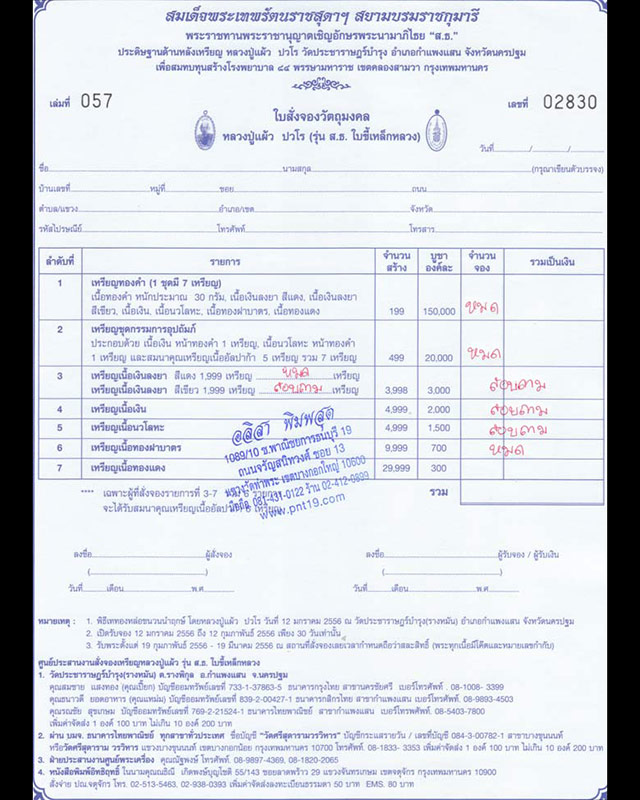 สมเด็จพระเทพรัตนราชสุดาฯ สยามบรมราชกุมารี
พระราชทานพระราชานุญาตเชิญอักษรพระนามาภิไธย "ส.ธ."
ประดิษฐานด้านหลังเหรียญ หลวงปู่แผ้ว ปวโร วัดประชาราษฎร์บำรุง อำเภอกำแพงแสน จังหวัดนครปฐม
เพื่อสมทบทุนสร้างโรงพยาบาล ๔๔ พรรษามหาราช เขตคลองสามวา กรุงเทพมหานคร
เล่มที่ 057
เลขที่ 02830
ใบสั่งจองวัตถุมงคล
หลวงปู่แผ้ว ปวโร (รุ่น ส.ธ. ใบขี้เหล็กหลวง)
วันที่ / /
ชื่อ นามสกุล (กรุณาเขียนตัวบรรจง)
บ้านเลขที่ หมู่ที่ ซอย ถนน
ตำบล/แขวง อำเภอ/เขต จังหวัด
รหัสไปรษณีย์ โทรศัพท์ โทรสาร
ลำดับที่ รายการ จำนวนสร้าง บูชาองค์ละ จำนวนจอง รวมเป็นเงิน
1 เหรียญทองคำ (1 ชุดมี 7 เหรียญ)
เนื้อทองคำ หนักประมาณ 30 กรัม, เนื้อเงินลงยา สีแดง, เนื้อเงินลงยา
สีเขียว, เนื้อเงิน, เนื้อนวโลหะ, เนื้อทองฝาบาตร, เนื้อทองแดง 199 150,000 หมด
2 เหรียญชุดกรรมการอุปถัมภ์
ประกอบด้วย เนื้อเงิน หน้าทองคำ 1 เหรียญ, เนื้อนวโลหะ หน้าทองคำ
1 เหรียญ และสมนาคุณเหรียญเนื้ออัลปาก้า 5 เหรียญ รวม 7 เหรียญ 499 20,000 หมด
3 เหรียญเนื้อเงินลงยา สีแดง 1,999 เหรียญ หมด เหรียญ
เหรียญเนื้อเงินลงยา สีเขียว 1,999 เหรียญ สอบถาม เหรียญ 3,998 3,000 สอบถาม
4 เหรียญเนื้อเงิน 4,999 2,000 สอบถาม
5 เหรียญเนื้อนวโลหะ 4,999 1,500 สอบถาม
6 เหรียญเนื้อทองฝาบาตร 9,999 700 หมด
7 เหรียญเนื้อทองแดง 29,999 300
อลิสา พิมพสุต
1089/10 ซ.พาณิชยการธนบุรี 19
ถนนจรัญสนิทวงศ์ ซอย 13
แขวงวัดท่าพระ เขตบางกอกใหญ่ 10600
มือถือ 081-431-0122 ร้าน 02-412-0899
www.pnt19.com
**** เฉพาะผู้ที่สั่งจองรายการที่ 3-7 รวม
จะได้รับสมนาคุณเหรียญเนื้ออัลปาก้า เหรียญ
ลงชื่อ ผู้สั่งจอง ลงชื่อ ผู้รับจอง / ผู้รับเงิน
( ) ( )
วันที่ เดือน พ.ศ. วันที่ เดือน พ.ศ.
หมายเหตุ : 1. พิธีเททองหล่อชนวนนำฤกษ์ โดยหลวงปู่แผ้ว ปวโร วันที่ 12 มกราคม 2556 ณ วัดประชาราษฎร์บำรุง(รางหมัน) อำเภอกำแพงแสน จังหวัดนครปฐม
2. เปิดรับจอง 12 มกราคม 2556 ถึง 12 กุมภาพันธ์ 2556 เพียง 30 วันเท่านั้น
3. รับพระตั้งแต่ 19 กุมภาพันธ์ 2556 - 19 มีนาคม 2556 ณ สถานที่สั่งจองเลยเวลากำหนดถือว่าสละสิทธิ์ (พระทุกเนื้อมีโค๊ตและหมายเลขกำกับ)
ศูนย์ประสานงานสั่งจองเหรียญหลวงปู่แผ้ว รุ่น ส.ธ. ใบขี้เหล็กหลวง
1. วัดประชาราษฎร์บำรุง(รางหมัน) ต.รางพิกุล อ.กำแพงแสน จ.นครปฐม
คุณสมชาย แสงทอง (คุณเปี๊ยก) บัญชีออมทรัพย์เลขที่ 733-1-37863-5 ธนาคารกรุงไทย สาขานครชัยศรี เบอร์โทรศัพท์ . 08-1008- 3399
คุณธนาวดี ยอดอาหาร (คุณแหม่ม) บัญชีออมทรัพย์เลขที่ 839-2-00427-1 ธนาคารกสิกรไทย สาขากำแพงแสน เบอร์โทรศัพท์. 08-9893-4503
คุณรณชัย สุขเกษม บัญชีออมทรัพย์เลขที่ 769-2-21524-1 ธนาคารไทยพาณิชย์ สาขากำแพงแสน เบอร์โทรศัพท์. 08-5403-7800
เพิ่มค่าจัดส่ง 1 องค์ 100 บาท ไม่เกิน 10 องค์ 200 บาท
2. ผ่าน บมจ. ธนาคารไทยพาณิชย์ ทุกสาขาทั่วประเทศ ชื่อบัญชี "วัดศรีสุดารามวรวิหาร" บัญชีกระแสรายวัน / เลขที่บัญชี 084-3-00782-1 สาขาบางขุนนนท์
หรือวัดศรีสุดาราม วรวิหาร แขวงบางขุนนนท์ เขตบางกอกน้อย กรุงเทพฯ 10700 โทรศัพท์. 08-1833- 3353 เพิ่มค่าจัดส่ง 1 องค์ 100 บาท ไม่เกิน 10 องค์ 200 บาท
3. ฝ่ายประสานงานศูนย์พระเครื่อง คุณณัฐพงษ์ โทรศัพท์. 08-9897-4369, 08-1820-2065
4. หนังสือพิมพ์อิทธิฤทธิ์ ในนามคุณณธินี เกิดพงษ์บุญโชติ 55/143 ซอยลาดพร้าว 29 แขวงจันทรเกษม เขตจตุจักร กรุงเทพมหานคร 10900
สั่งจ่าย ปณ.จตุจักร โทร. 02-513-5463, 02-938-0393 เพิ่มค่าจัดส่งลงทะเบียนธรรมดา 50 บาท EMS. 80 บาท